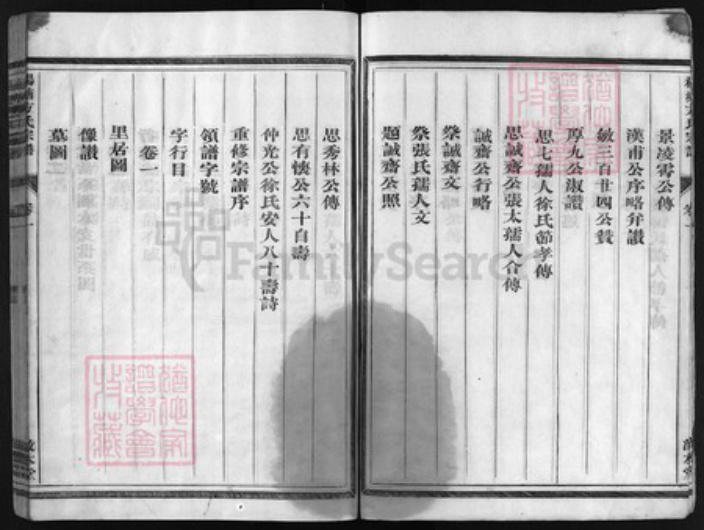 景凌霄公傳
漢甫公序略弁讚
敏三百廿四公贊
厚九公淑讚
思七孺人徐氏節孝傳
思誠齋公張太孺人合傳
誠齋公行略
祭誠齋文
祭張氏孺人文
題誠齋公照
思秀林公傳
思有懷公六十自壽
仲光公徐氏安人八十壽詩
重修宗譜序
領譜字號
字行目
卷一
里居圖
像讚
墓圖
FamilySearch